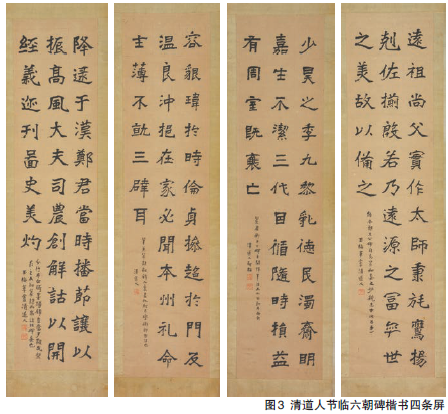 遠祖尚父實作太師秉旄鷹揚
剋佐揃殷若乃遠源之富弈世
之美故以備之
少昊之季九黎亂德民瀆齋明
嘉生不潔三代因循隨時損益
有周室既衰亡
容貌瑋於時倫貞操超於門友
温良沖挹在家必聞本州礼命
士薄不就三辟耳
降逮于漢鄭君當時播節讓以
振高風大夫司農創解詁以開
經義迹刊圖史美灼
图3 清道人节临六朝碑楷书四条屏